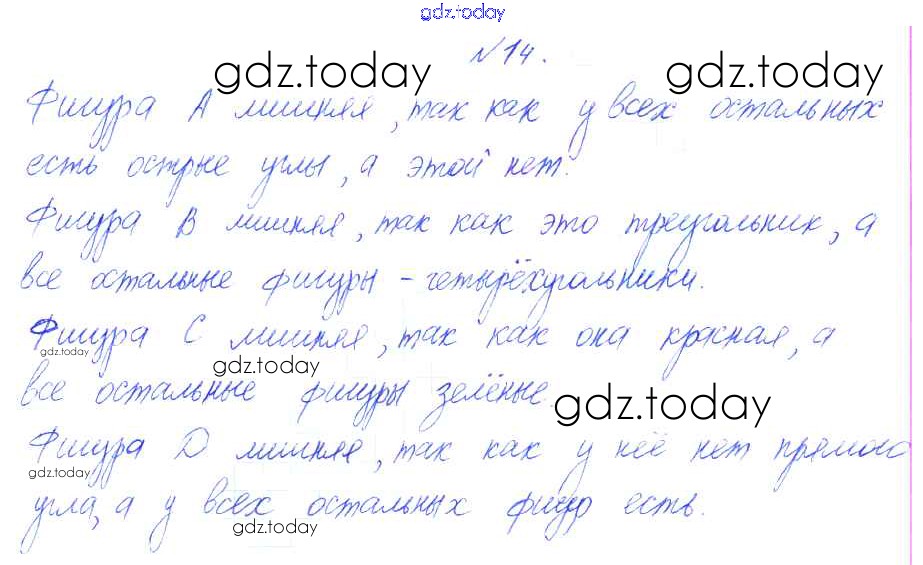 gdz.today
№14.
gdz.today gdz.today
Фигура А лишняя, так как у всех остальных
есть острые углы, а этой нет.
Фигура В лишняя, так как это треугольник, а
все остальные фигуры - четырёхугольники.
Фигура С лишняя, так как она красная, а
gdz.today
gdz.today
все остальные фигуры зелёные.
gdz.today
Фигура D лишняя, так как у неё нет прямого
gdz.today
угла, а у всех остальных фигур есть.
gdz.today